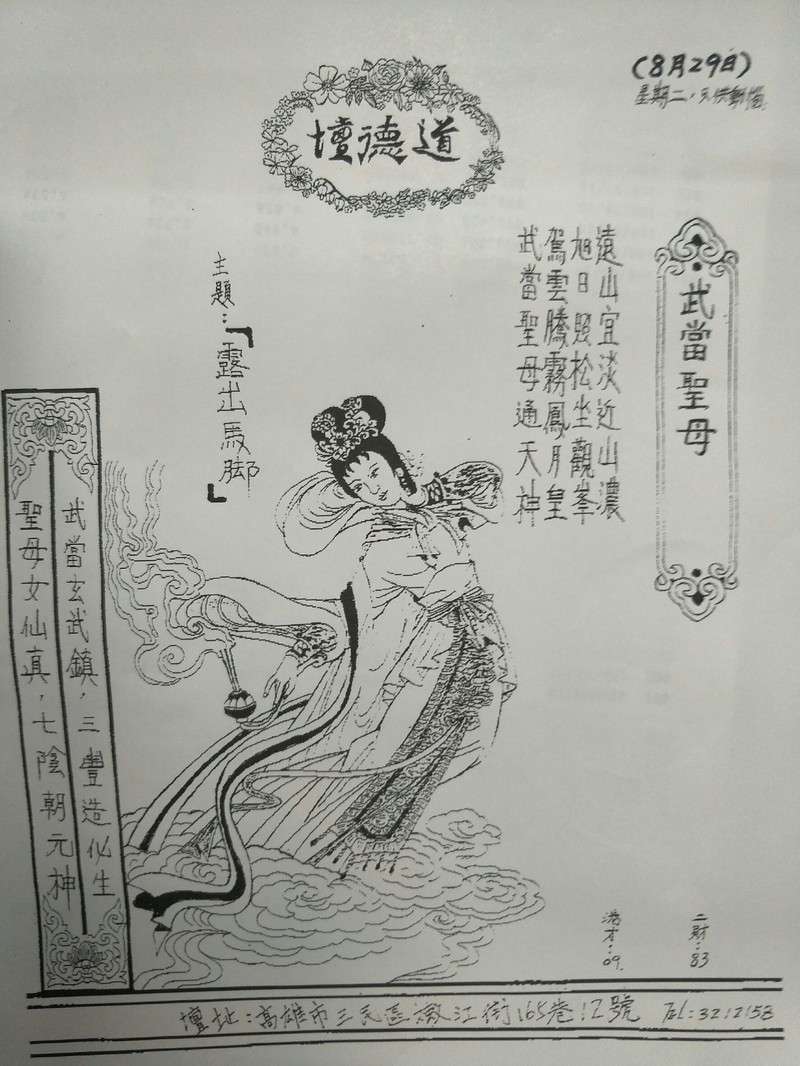 (8月29日)
星期二,
道德壇
武當聖母
遠山宜淡近山濃
旭日照松坐觀峯
駕雲騰霧鳳月皇
武當聖母通天神
主題:「露出馬脚」
武當玄武鎮,三豐造化生
聖母女仙真,七陰朝元神
二財:83
:09.
壇址:高雄市三民區嫩江街165巷12號 TEL:3212158